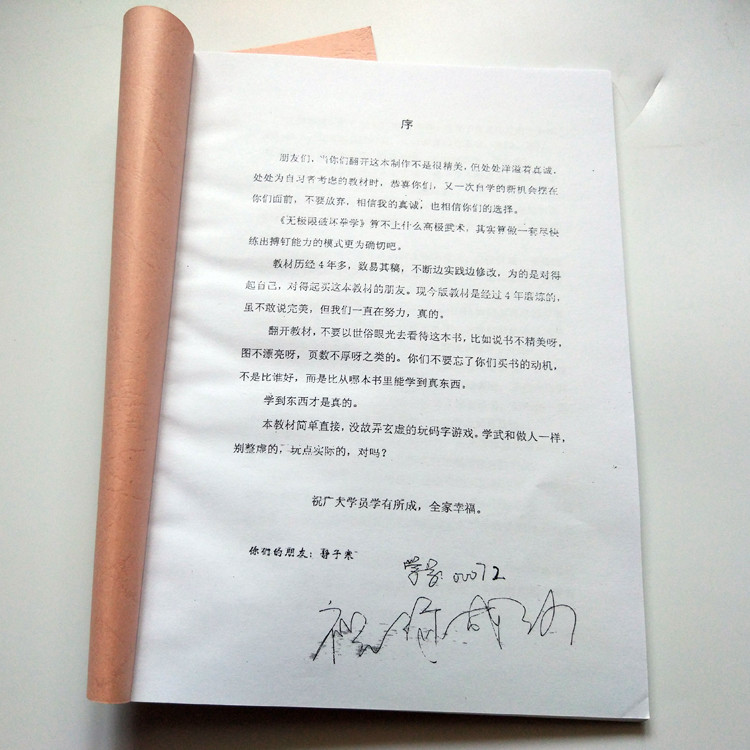 序
朋友们，当你们翻开这本制作不是很精美，但处处洋溢着真诚，
处处为自习者考虑的教材时，恭喜你们，又一次自学的新机会摆在
你们面前，不要放弃，相信我的真诚，也相信你们的选择。
《无极限破坏拳学》算不上什么高极武术，其实算做一套尽快
练出搏钉能力的模式更为确切吧。
教材历经4年多，致易其稿，不断边实践边修改，为的是对得
起自己，对得起买这本教材的朋友。现今版教材是经过4年磨炼的，
虽不敢说完美，但我们一直在努力，真的。
翻开教材，不要以世俗眼光去看待这本书，比如说书不精美呀，
图不漂亮呀，页数不厚呀之类的。你们不要忘了你们买书的动机，
不是比谁好，而是比从哪本书里能学到真东西。
学到东西才是真的。
本教材简单直接，没故弄玄虚的玩码字游戏。学武和做人一样，
别整虚的，玩点实际的，对吗？
祝广大学员学有所成，全家幸福。
你们的朋友：静子寒
学号：00072
祝你成功